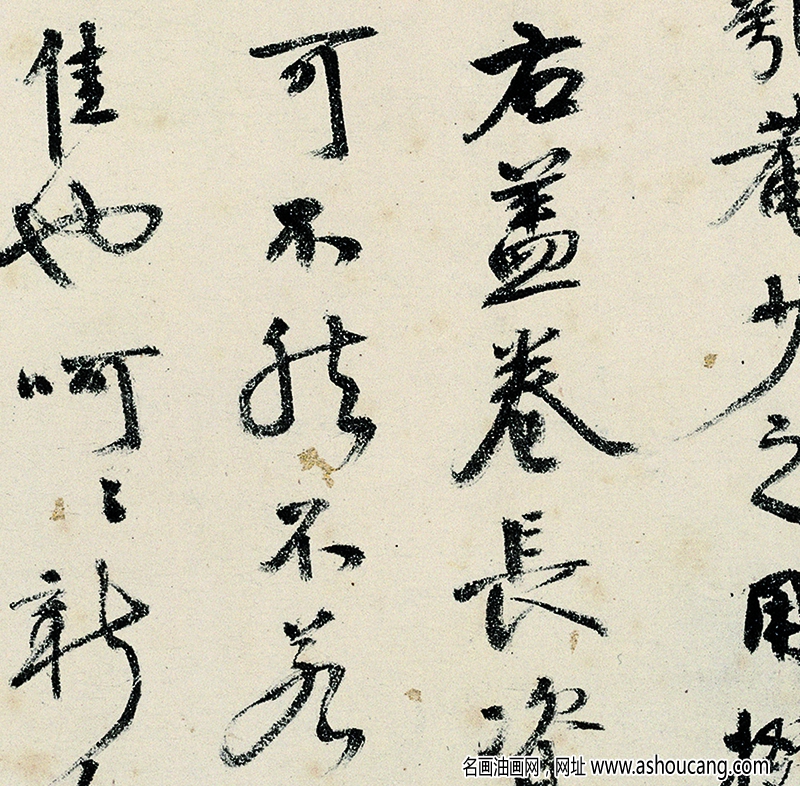 庵少之用
右盖卷長
可不能不若
佳也呵〻新
名画油画网，网址 www.ashoucang.com